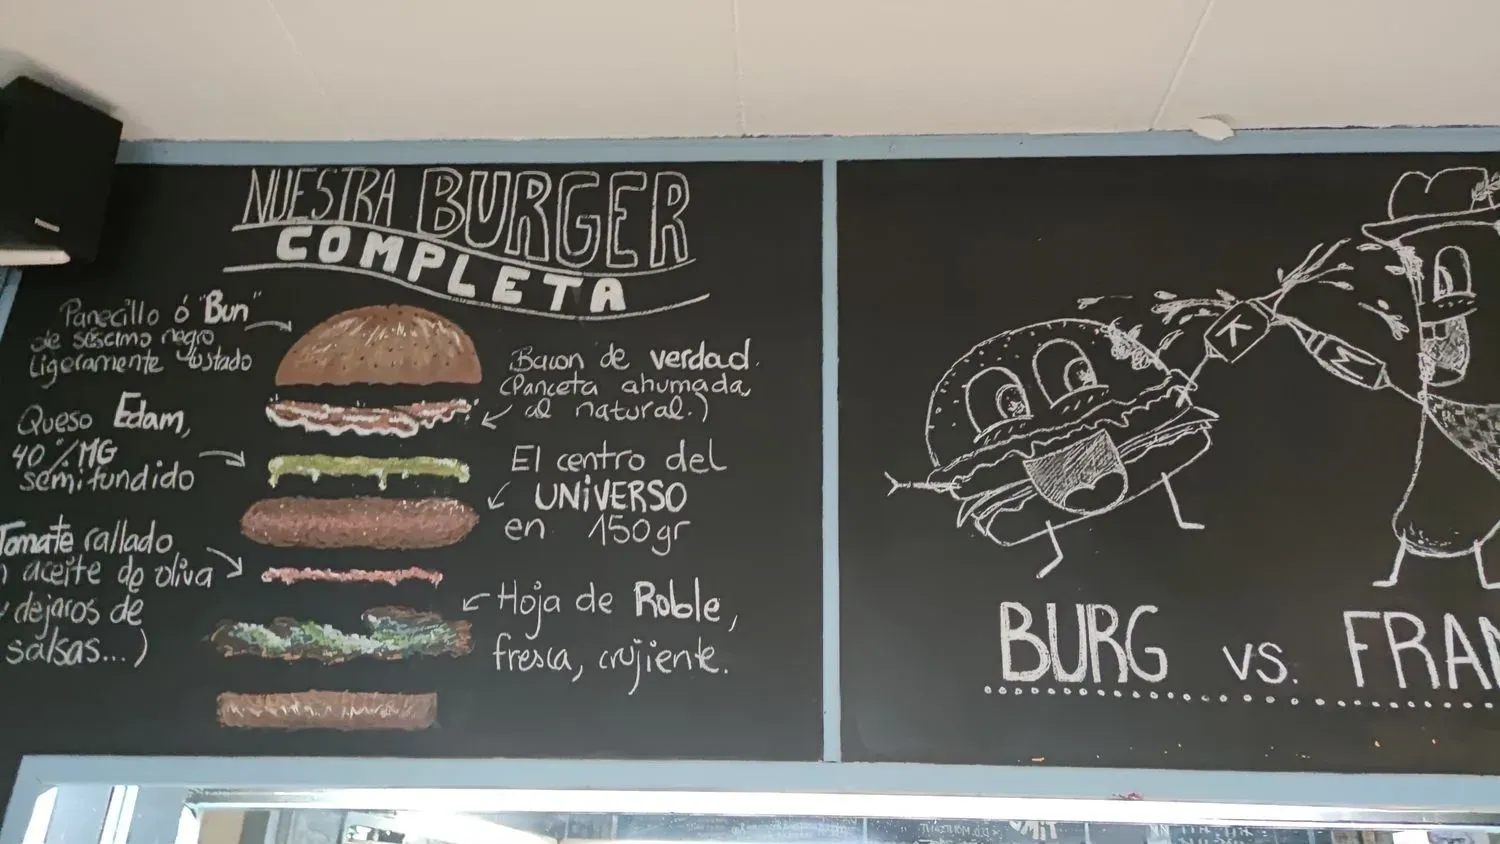 NUESTRA BURGER
COMPLETA
Panecillo ó "Bun"
de séscimo negro
Ligeramente tostado
Queso Edam,
40%MG
semifundido
Tomate rallado
aceite de oliva
dejaros de
salsas...)
Bacon de verdad.
(Panceta ahumada
al natural.)
El centro del
UNIVERSO
en 150gr
Hoja de Roble,
fresca, crujiente.
K
M
BURG VS. FRAN